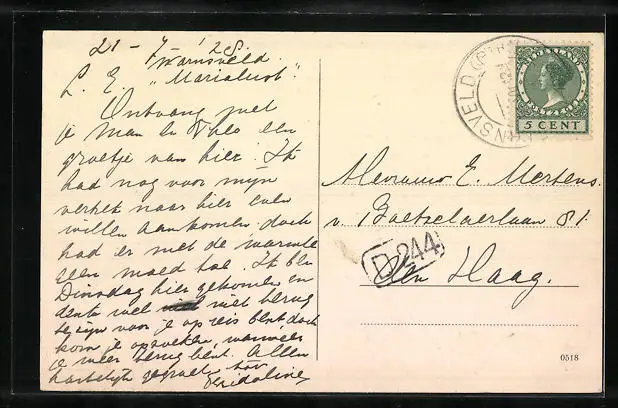 21-7-'28.
Warnsveld
"Marialust".
L. E.
Ontvang met
je man en een
groetje van hier. Ik
had nog voor mijn
vertrek naar hier even
willen aankomen, doch
had er met de warmte
geen moed toe. Ik ben
Dinsdag hier gekomen en
denk wel niet terug
te zijn voor je op reis bent, doch
kom je opzoeken, wanneer
je weer terug bent. Allen
hartelijk gegroet
NSVELD
NEDERLAND
5 CENT
Mevrouw E. Mertens.
v. Boetzelaerlaan 81.
D 244
Den Haag.
0518